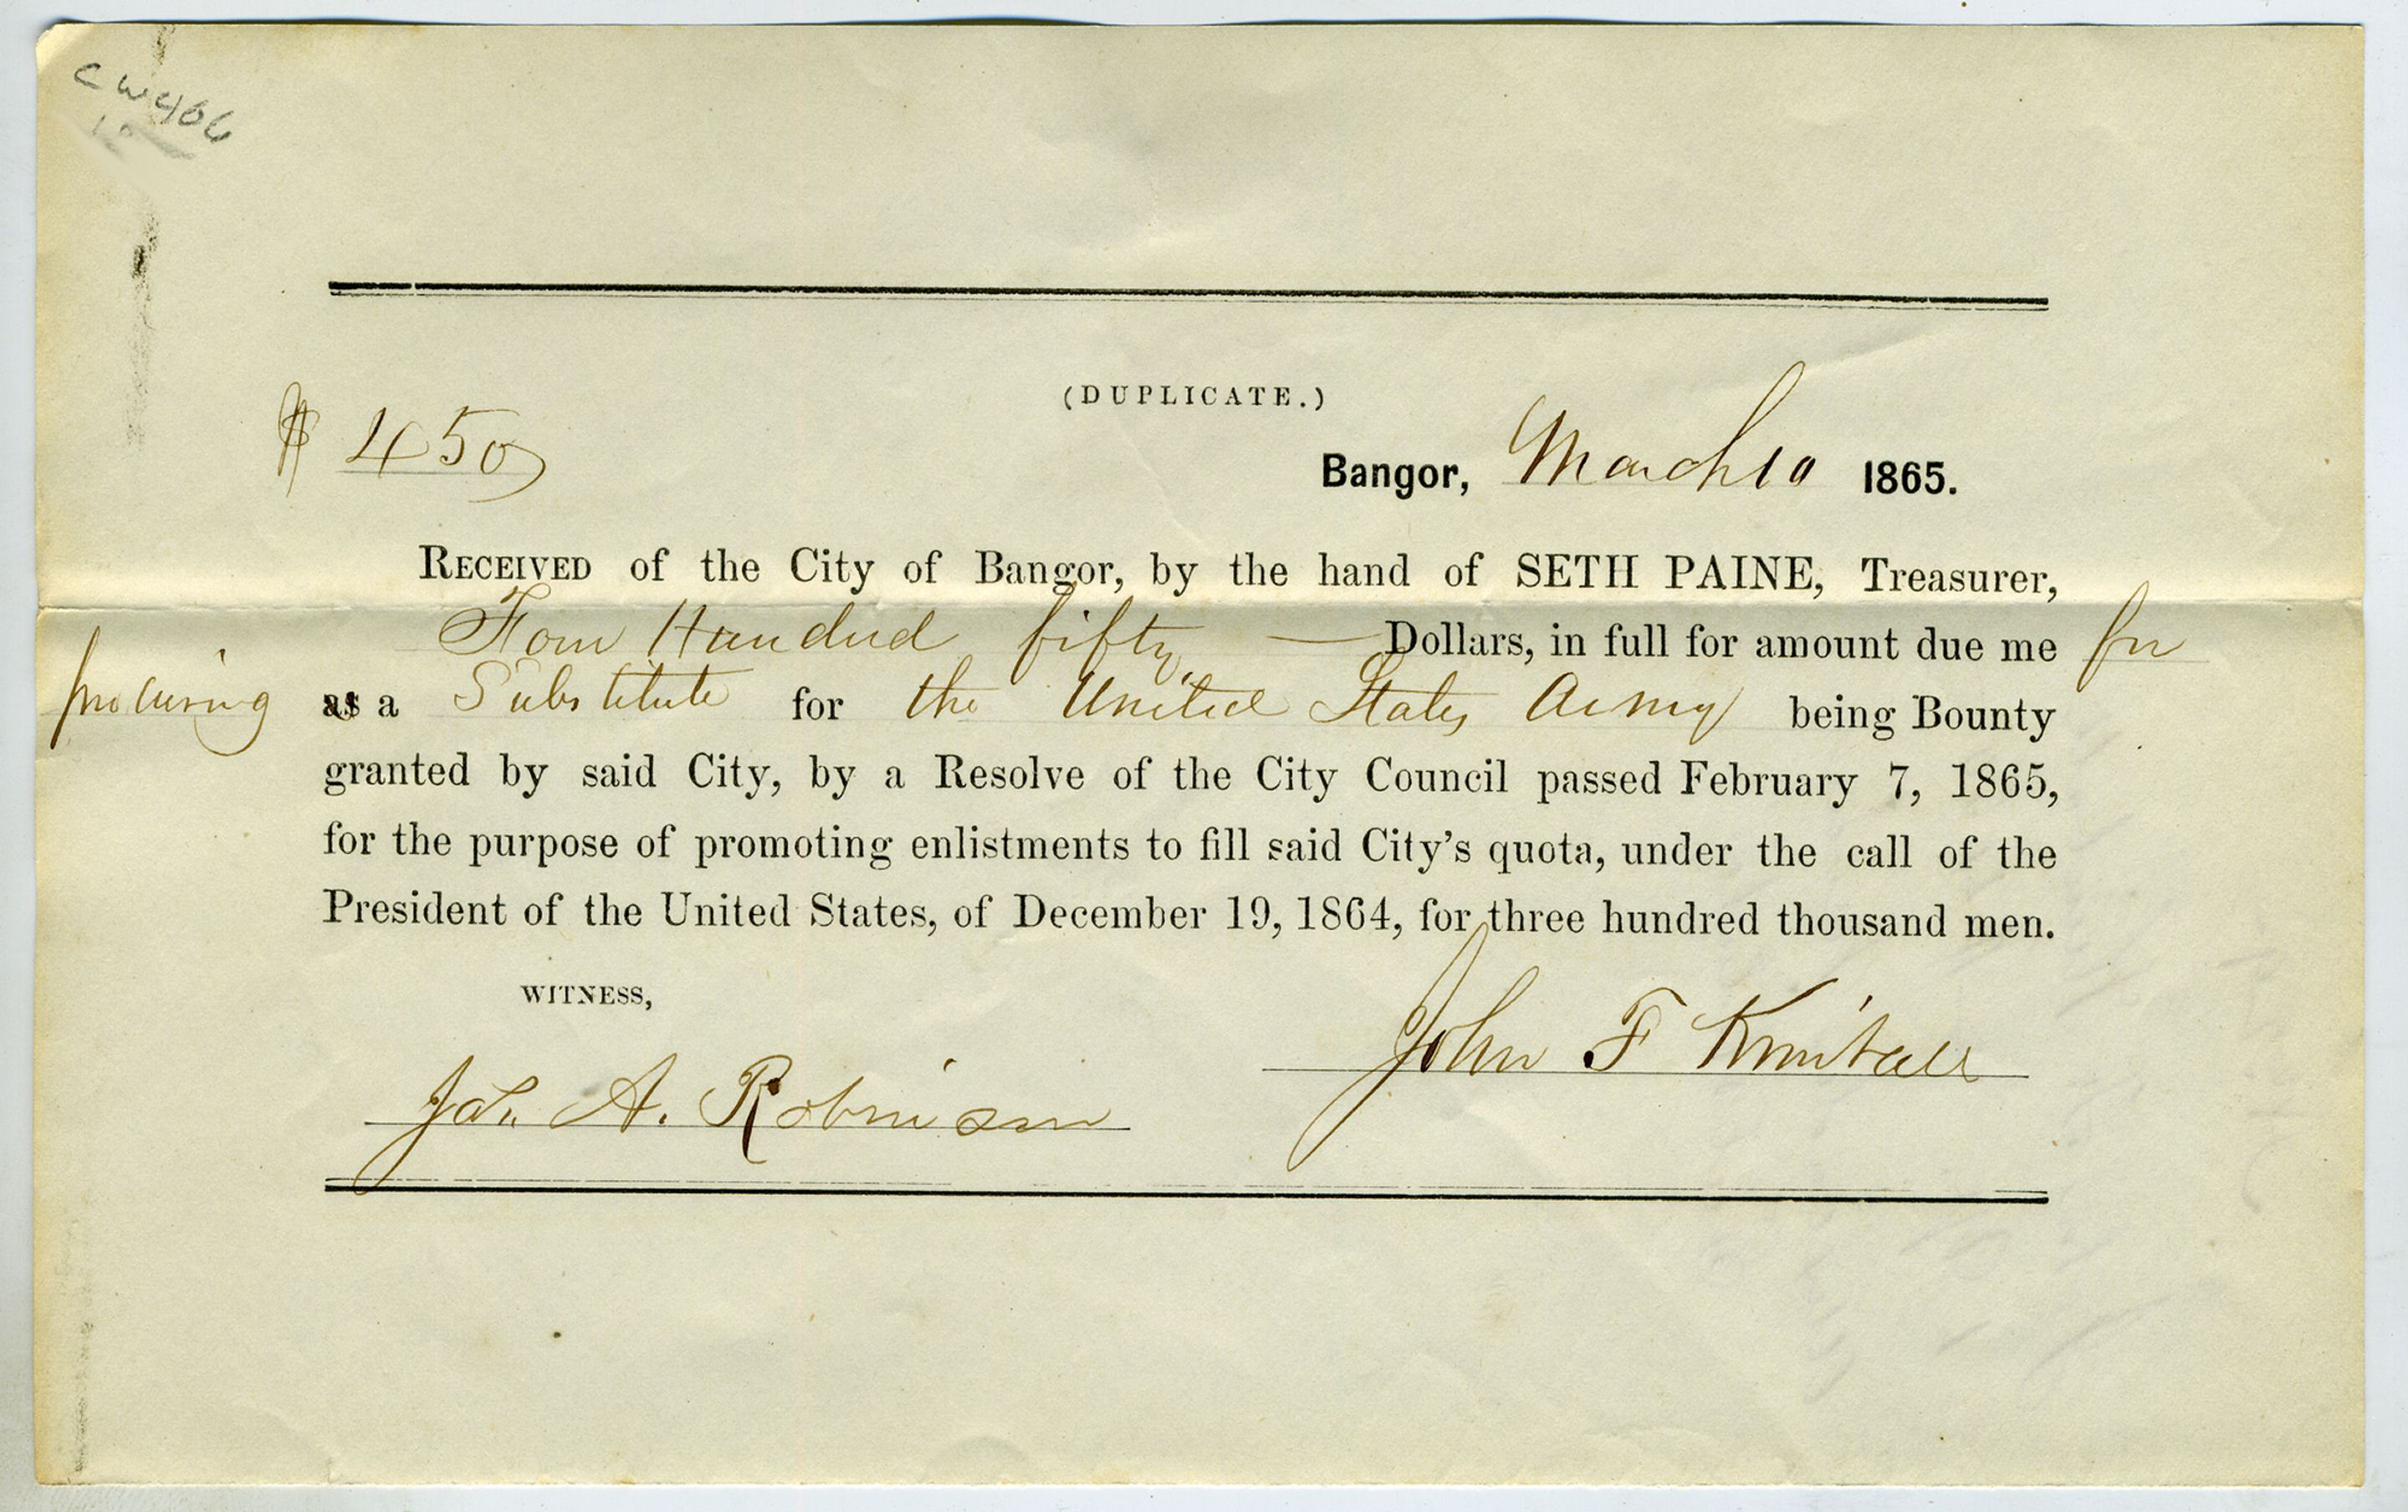 CW406
(DUPLICATE.)
$ 450
Bangor, March 10 1865.
RECEIVED of the City of Bangor, by the hand of SETH PAINE, Treasurer,
Four Hundred fifty — Dollars, in full for amount due me for
procuring as a Substitute for the United States Army being Bounty
granted by said City, by a Resolve of the City Council passed February 7, 1865,
for the purpose of promoting enlistments to fill said City's quota, under the call of the
President of the United States, of December 19, 1864, for three hundred thousand men.
WITNESS,
John F Kimball
A. Robinson